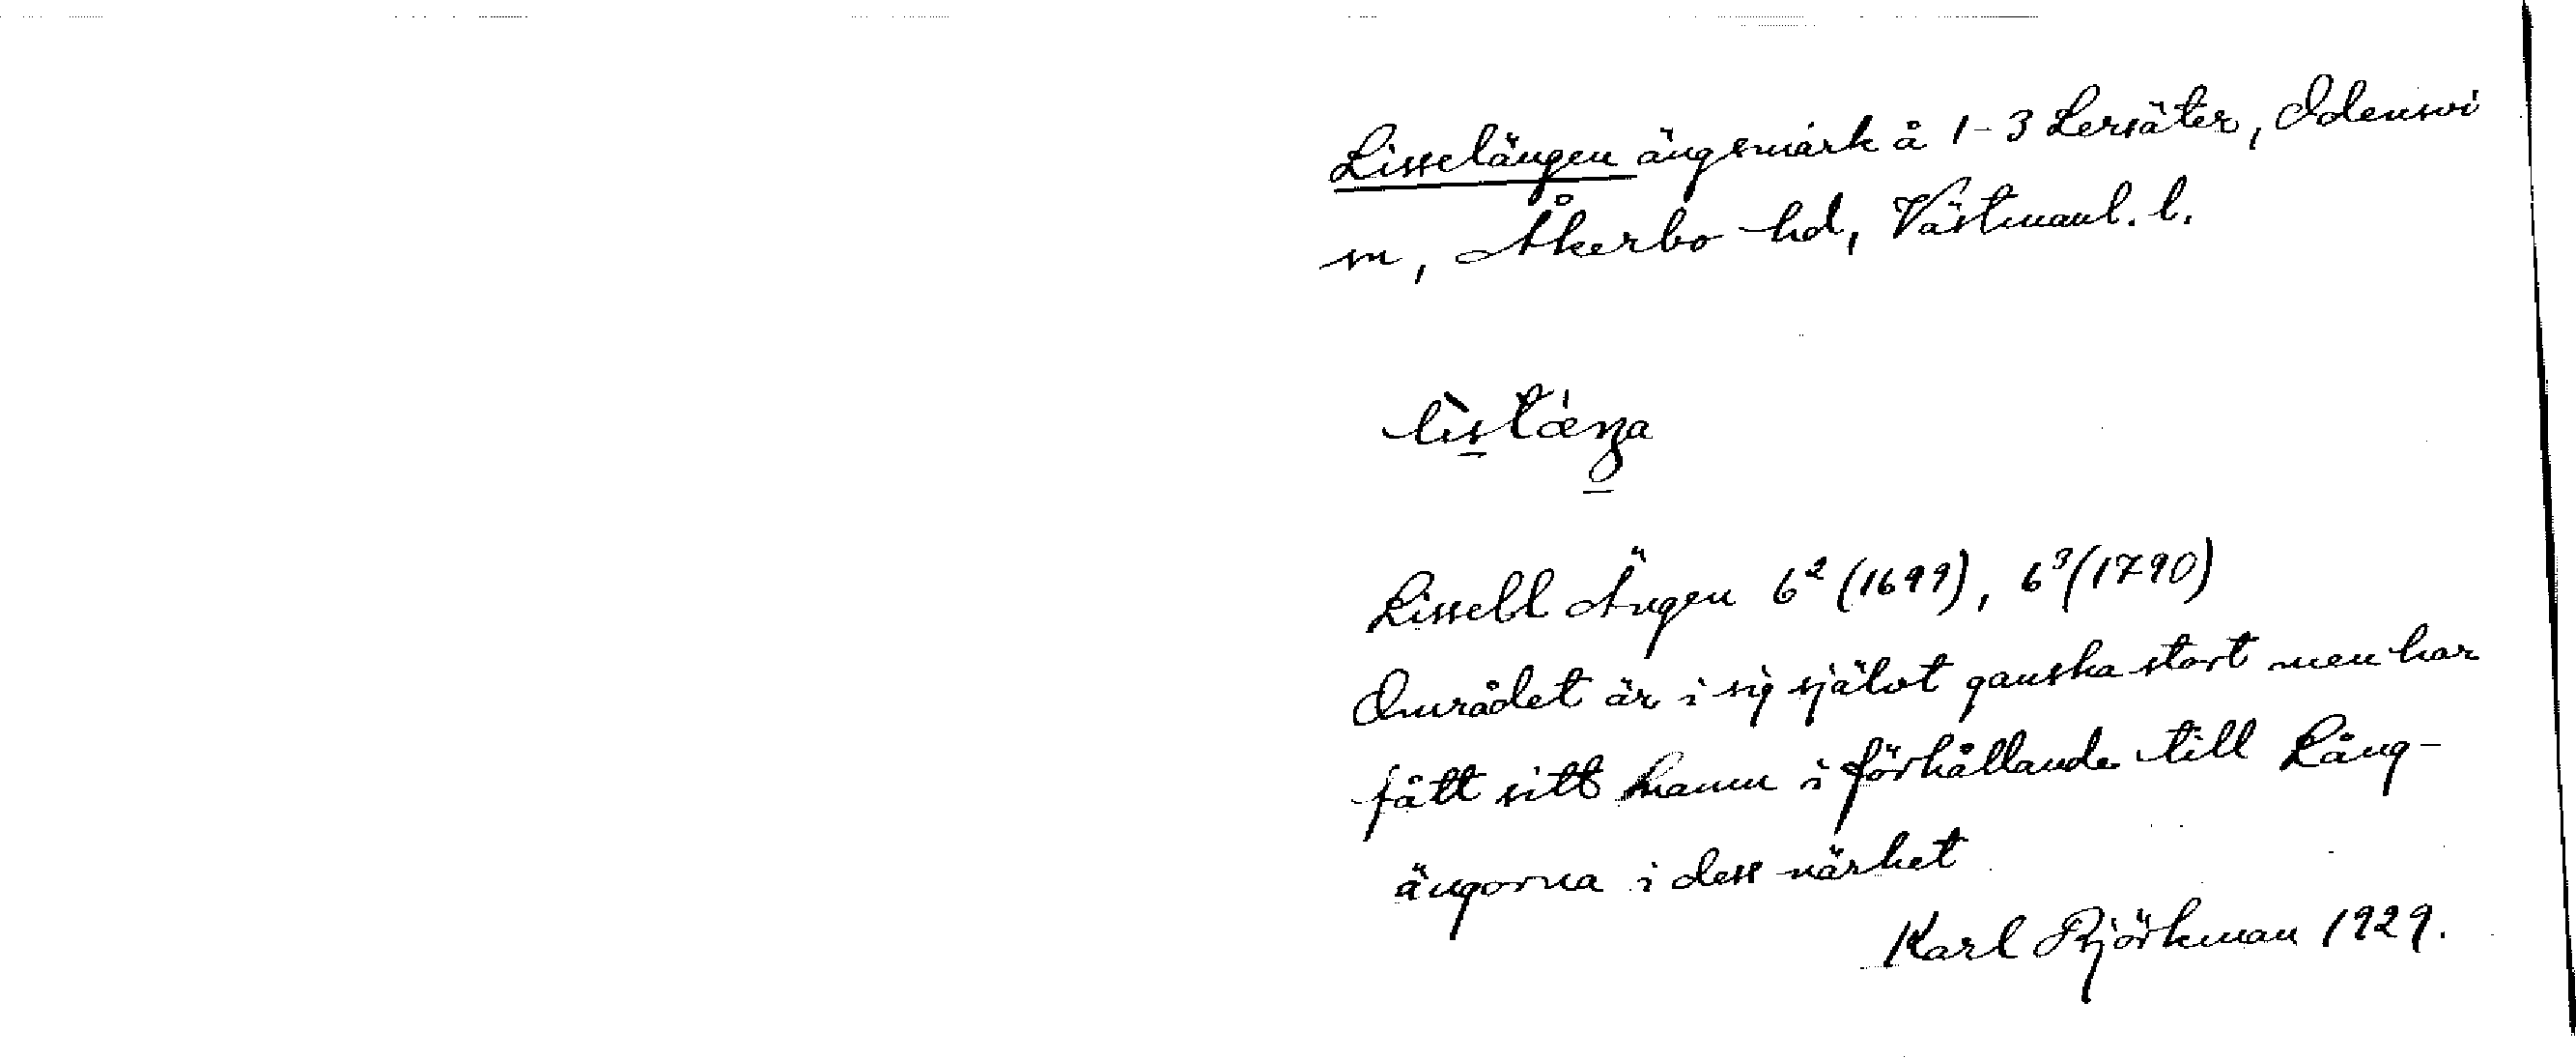 Lisselängen ängsmark å 1-3 Lersäter, Odensvi
sn, Åkerbo hd, Västmanl. l.
Lissell Ängen 6² (1699), 6³ (1790)
Området är i sig självt ganska stort men har
fått sitt namn i förhållande till Lång-
ängorna i dess närhet
Karl Björkman 1929.